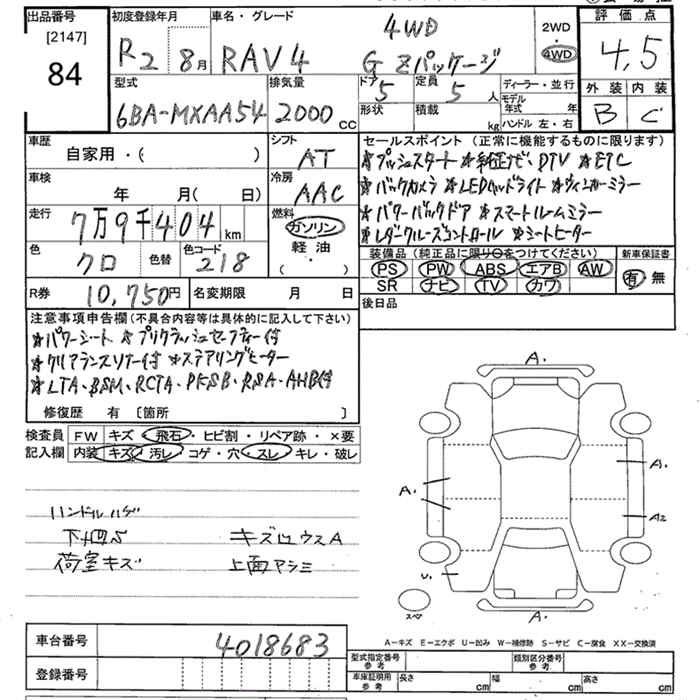 出品番号
[2147]
84
初度登録年月
R2 8月
車名・グレード
RAV4 4WD
G Zパッケージ
2WD
4WD
評価点
4,5
外装 内装
B C
型式
6BA-MXAA54
排気量
2000 cc
ドア
5
定員
5 人
形状
積載
kg
ディーラー・並行
モデル年式 年
ハンドル 左・右
車歴
自家用・( )
シフト
AT
車検
年 月( 日)
冷房
AAC
走行
7万9千404 km
燃料
ガソリン
軽油
・( )
色
クロ
色替
色コード
218
R券
10,750円
名変期限 月 日
セールスポイント (正常に機能するものに限ります)
★プッシュスタート ★純正ナビ DTV ★ETC
★バックカメラ ★LEDヘッドライト ★ウィンカーミラー
★パワーバックドア ★スマートルームミラー
★レダークルーズコントロール ★シートヒーター
装備品 (純正品に限り○をつけてください)
PS PW ABS エアB AW
SR ナビ TV カワ
新車保証書
有 無
後日品
注意事項申告欄 (不具合内容等は具体的に記入して下さい)
★パワーシート ★プリクラッシュセーフティー付
★クリアランスソナー付 ★ステアリングヒーター
★LTA・BSM・RCTA・PKSB・RSA・AHB付
修復歴 有 〔箇所 〕
検査員 FW キズ・飛石・ヒビ割・リペア跡・×要
記入欄 内装 キズ・汚レ・コゲ・穴・スレ・キレ・破レ
ハンドルハゲ
下廻り キズ凹ウスA
荷室キズ 上面アシミ
A・
A・
A・
A2
U・
A・
スペア
A-キズ E-エクボ U-凹み W-補修跡 S-サビ C-腐食 XX-交換済
車台番号 4018683
登録番号
型式指定番号 参考
類別区分番号 参考
車庫証明用 参考 長さ cm 幅 cm 高さ cm